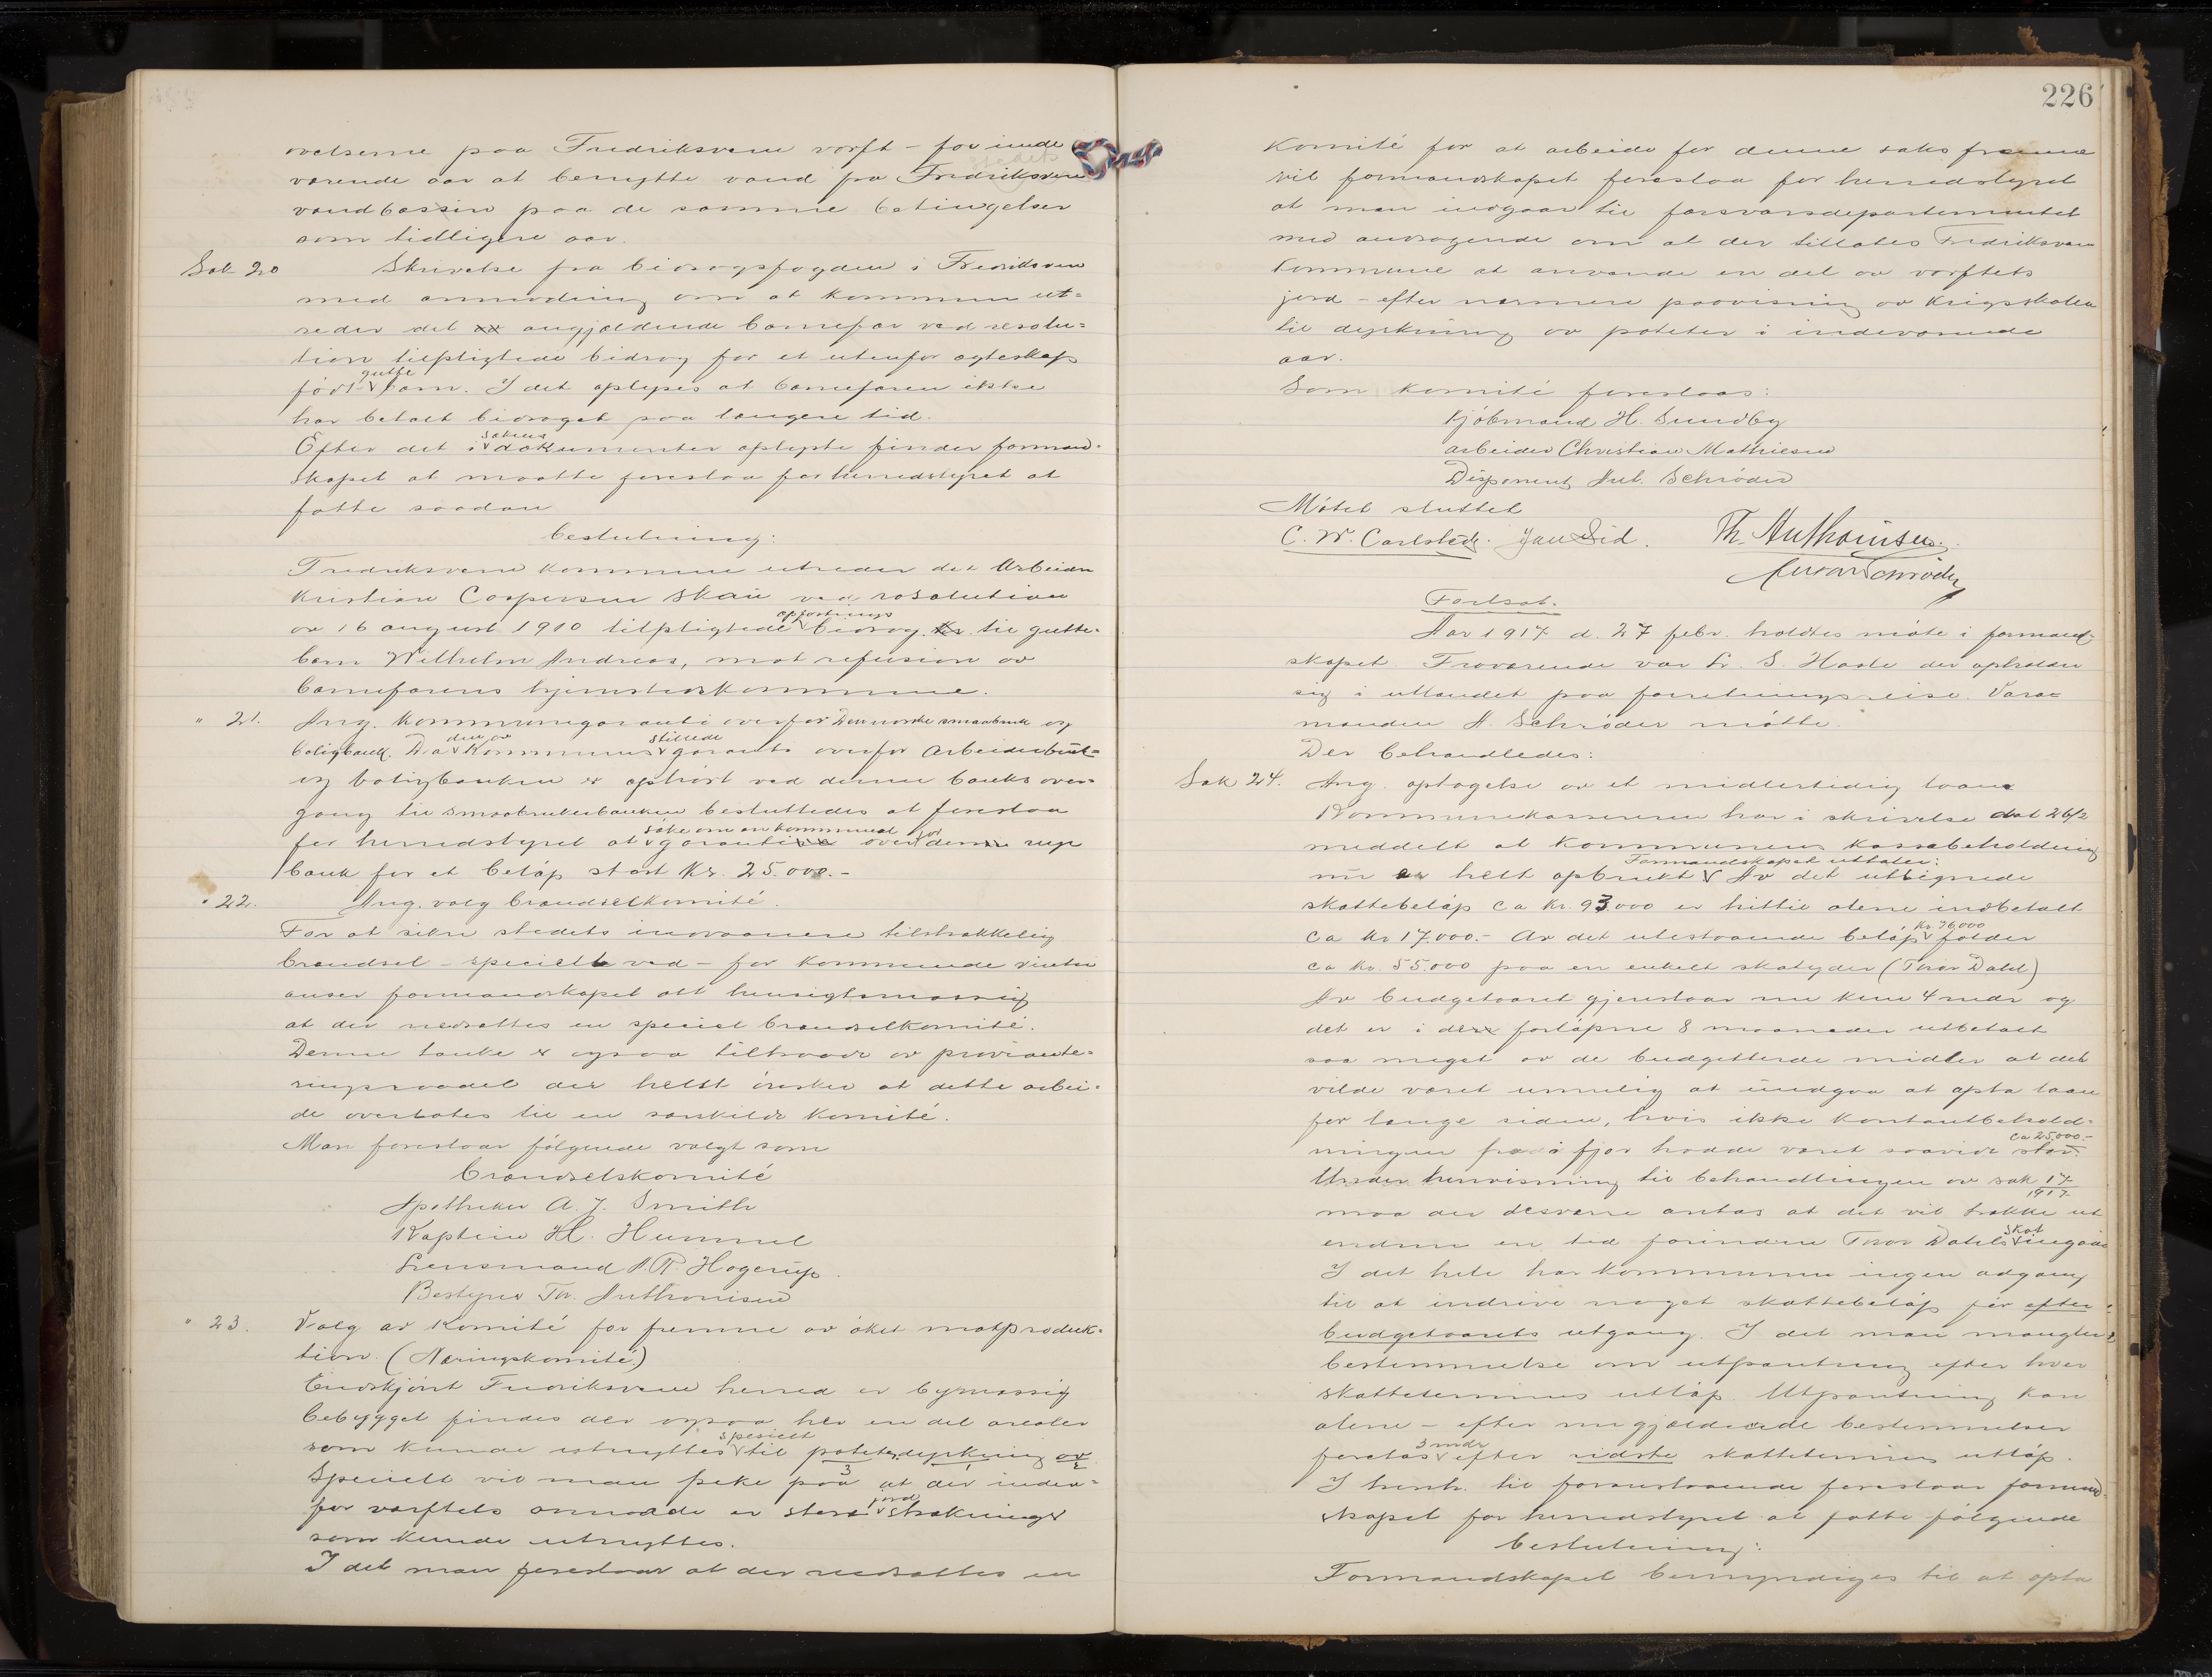 ovelserne paa Fredriksvern verft - for inde
værende aar at benytte vand fra Fredriksvern
stedets
vandbassin paa de samme betingelser
som tidligere aar.
Sak 20 Skrivelse fra bidragsfogden i Fredriksvern
med anmodning om at kommunen ut=
reder det angjældende barnefar ved resolu=
tion tilpligtede bidrag for et utenfor egteskap
født gutte barn. I det oplyses at barnefaren ikke
har betalt bidraget paa længere tid.
Efter det i sakens dokumenter oplyste finder forman=
skapet at maatte foreslaa for herredstyret at
fatte saadan
beslutning:
Fredriksvern kommune utreder det Arbeider
Kristian Caspersen Skaii ved resolution
av 16 august 1910 tilpligtede opfostrings bidrag til gutte=
barn Wilhelm Andreas, mot refusion av
barnefarens hjemstedskommune.
" 21. Ang. Kommunegaranti overfor Den norske smaabruk og
boligbank. Da den av Kommunens stillede garanti overfor Arbeiderbruk=
og boligbanken er ophørt ved denne banks over=
gang til smaabrukerbanken besluttedes at foreslaa
for herredstyret at søke om en kommunal garanti overfor denne nye
bank for et beløp stort Kr. 25.000.-
" 22. Ang. valg brændselkomité.
For at sikre stedets indvaanere tilstrækkelig
brændsel - specielt ved - for kommende vinter
anser formandskapet det hensigtsmæssig
at der nedsættes en speciel brændselkomité.
Denne tanke er ogsaa tiltraadt av proviante=
ringsraadet der helst ønsker at dette arbei=
de overlates til en særskildt komité.
Man foreslaar følgende valgt som
brændselskomité
Apotheker A. J. Smith
Kaptein H. Hummel
Lensmand A. R. Hagerup.
Bestyrer Th. Anthonisen
" 23. Valg av komité for fremme av øket matproduk=
tion. (Næringskomité)
Endskjønt Fredriksvern herred er bymæssig
bebygget findes der ogsaa her en del arealer
som kunde utnyttes specielt til potetesdyrkning av
3 1 2
Specielt vil man peke paa at der inden=
for værftets omraade er store jord strækninger
som kunde utnyttes.
I det man foreslaar at der nedsættes en
226
komité for at arbeide for denne saks fremme
vil formandskapet foreslaa for herredstyret
at man indgaar til forsvarsdepartementet
med andragende om at der tillates Fredriksvern
kommune at anvende en del av værftets
jord - efter nærmere paavisning av Krigsskolen
til dyrkning av poteter i indeværende
aar.
Som komité foreslaaes:
Kjøbmand H. Sundby
arbeider Christian Mathiesen
Disponent Aut. Schrøder
Møtet sluttet
C. W. Carlstedt. Jan Lid. Th. Anthonisen.
Schrøder
Fortsat.
Aar 1917 d. 27 febr. holdtes møte i formand-
skapet. Fraværende var Hr. S. Hasle der opholder
sig i utlandet paa forretningsreise. Vara=
manden A. Schrøder møtte.
Der behandledes:
Sak 24. Ang. optagelse av et midlertidig laan
Kommunekassereren har i skrivelse dat 26/2
meddelt at Kommunens kassabeholdning
nu er helt opbrukt Formandskapet uttaler: Av det utlignede
skattebeløp ca kr. 93.000 er hittil alene indbetalt
ca kr 17.000.- Av det utestaaende beløp kr. 76000 falder
ca kr. 55.000 paa en enkelt skatyder (Thor Dahl)
Av budgetaaret gjenstaar nu kun 4 mdr og
det er i de forløpne 8 maaneder utbetalt
saa meget av de budgetterte midler at det
vilde været umulig at undgaa at opta laan
for længe siden, hvis ikke kontantbehold=
ningen fra i fjor hadde været saavidt stor. ca 25.000.-
Under henvisning til behandlingen av sak 17/1917
maa der desværre antas at det vil trække ut
endnu en tid forinden Thor Dahls skat ingaar
I det hele har kommunen ingen adgang
til at inddrive noget skattebeløp før efter
budgetaarets utgang. I det man mangler
bestemmelse om utpantning efter hver
skattetermins utløp. Utpantning kan
alene - efter nu gjældende bestemmelser
foretas 3 mdr efter sidste skattetermins utløp.
I henh. til foranstaaende foreslaar formand=
skapet for herredstyret at fatte følgende
beslutning:
Formandskapet bemyndiges til at opta